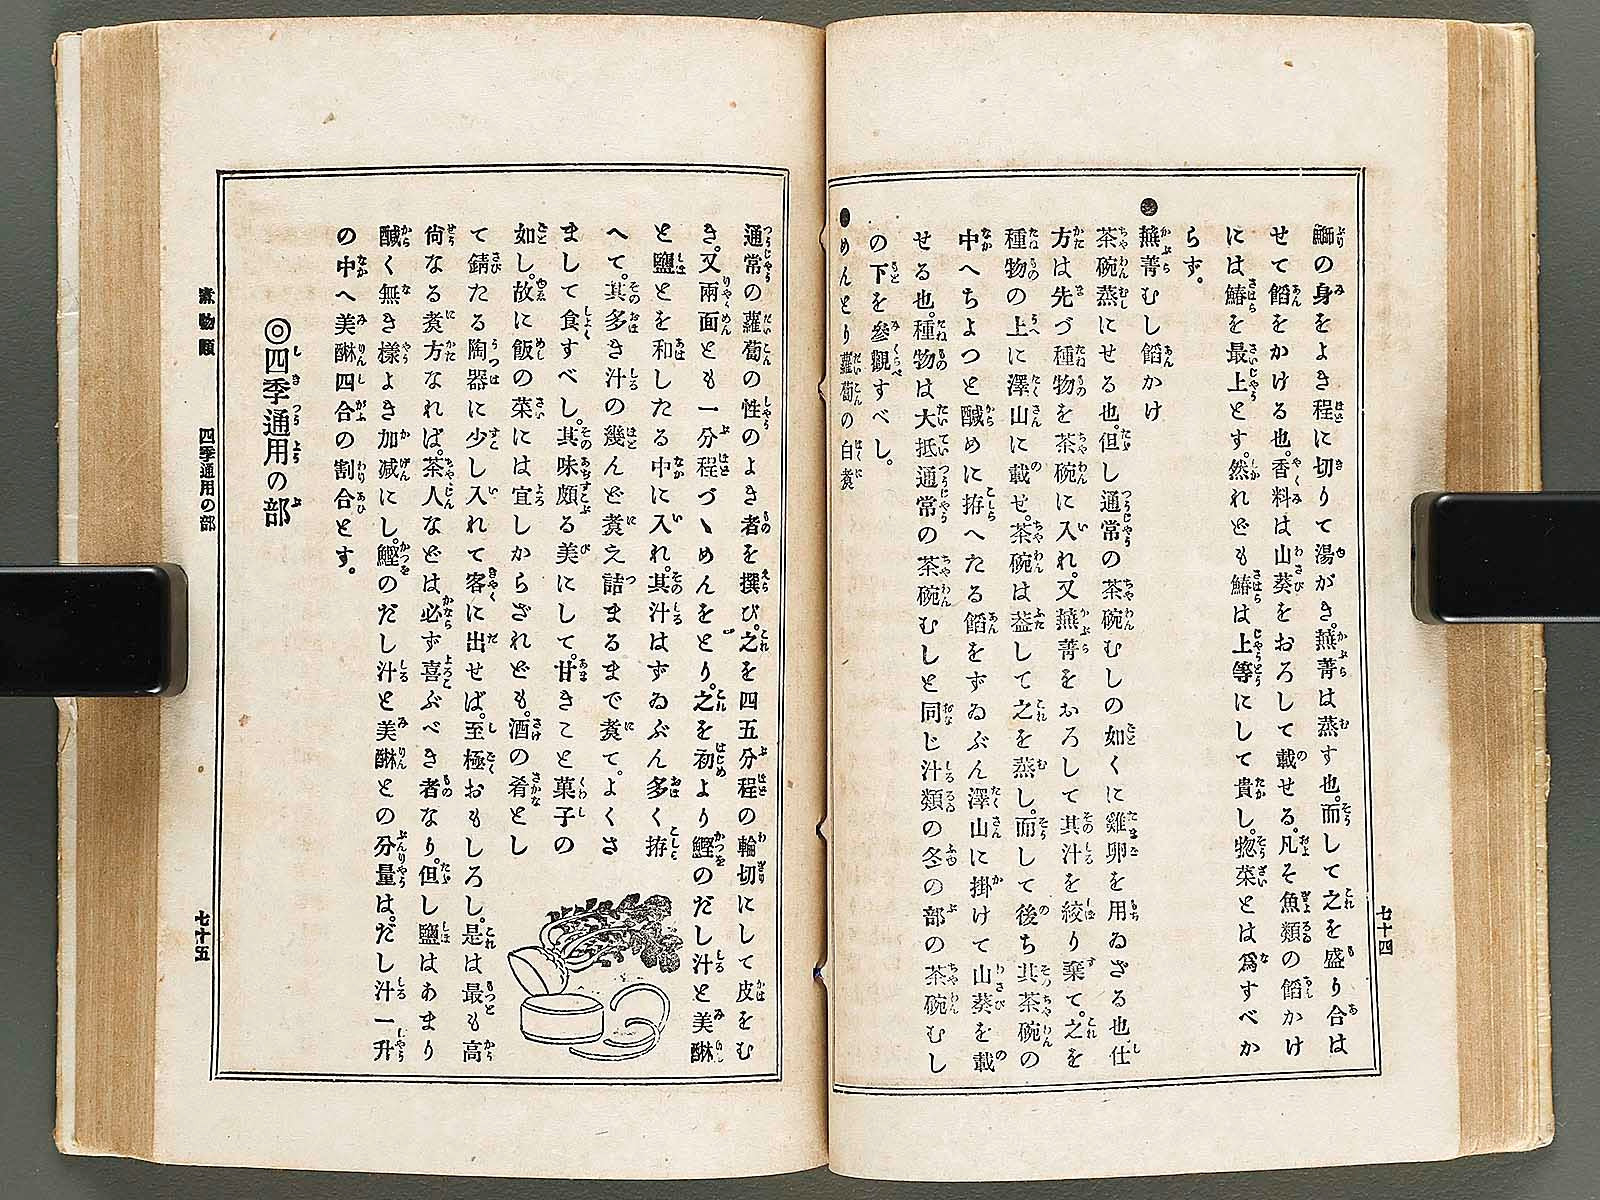 鰤の身をよき程に切りて湯がき。蕪菁は蒸す也。而して之を盛り合は
せて餡をかける也。香料は山葵をおろして載せる。凡そ魚類の餡かけ
には鰆を最上とす。然れども鰆は上等にして貴し。惣菜とは爲すべか
らず。
●蕪菁むし餡かけ
茶碗蒸にせる也。但し通常の茶碗むしの如くに雞卵を用ゐざる也仕
方は先づ種物を茶碗に入れ。又蕪菁をおろして其汁を絞り棄て。之を
種物の上に澤山に載せ。茶碗は葢して之を蒸し。而して後ち其茶碗の
中へちよつと醎めに拵へたる餡をずゐぶん澤山に掛けて山葵を載
せる也。種物は大抵通常の茶碗むしと同じ汁類の冬の部の茶碗むし
の下を參觀すべし。
●めんとり蘿蔔の白煑
七十四
通常の蘿蔔の性のよき者を撰び。之を四五分程の輪切にして皮をむ
き。又兩面とも一分程づゝめんをとり。之を初より鰹のだし汁と美醂
と鹽とを和したる中に入れ。其汁はずゐぶん多く拵
へて。其多き汁の幾んど煑え詰まるまで煑て。よくさ
まして食すべし。其味頗る美にして。甘きこと菓子の
如し。故に飯の菜には宜しからざれども。酒の肴とし
て錆たる陶器に少し入れて客に出せば。至極おもしろし。是は最も高
尙なる煑方なれば。茶人などは必ず喜ぶべき者なり。但し鹽はあまり
醎く無き樣よき加减にし。鰹のだし汁と美醂との分量は。だし汁一升
の中へ美醂四合の割合とす。
◎四季通用の部
煑物類 四季通用の部
七十五